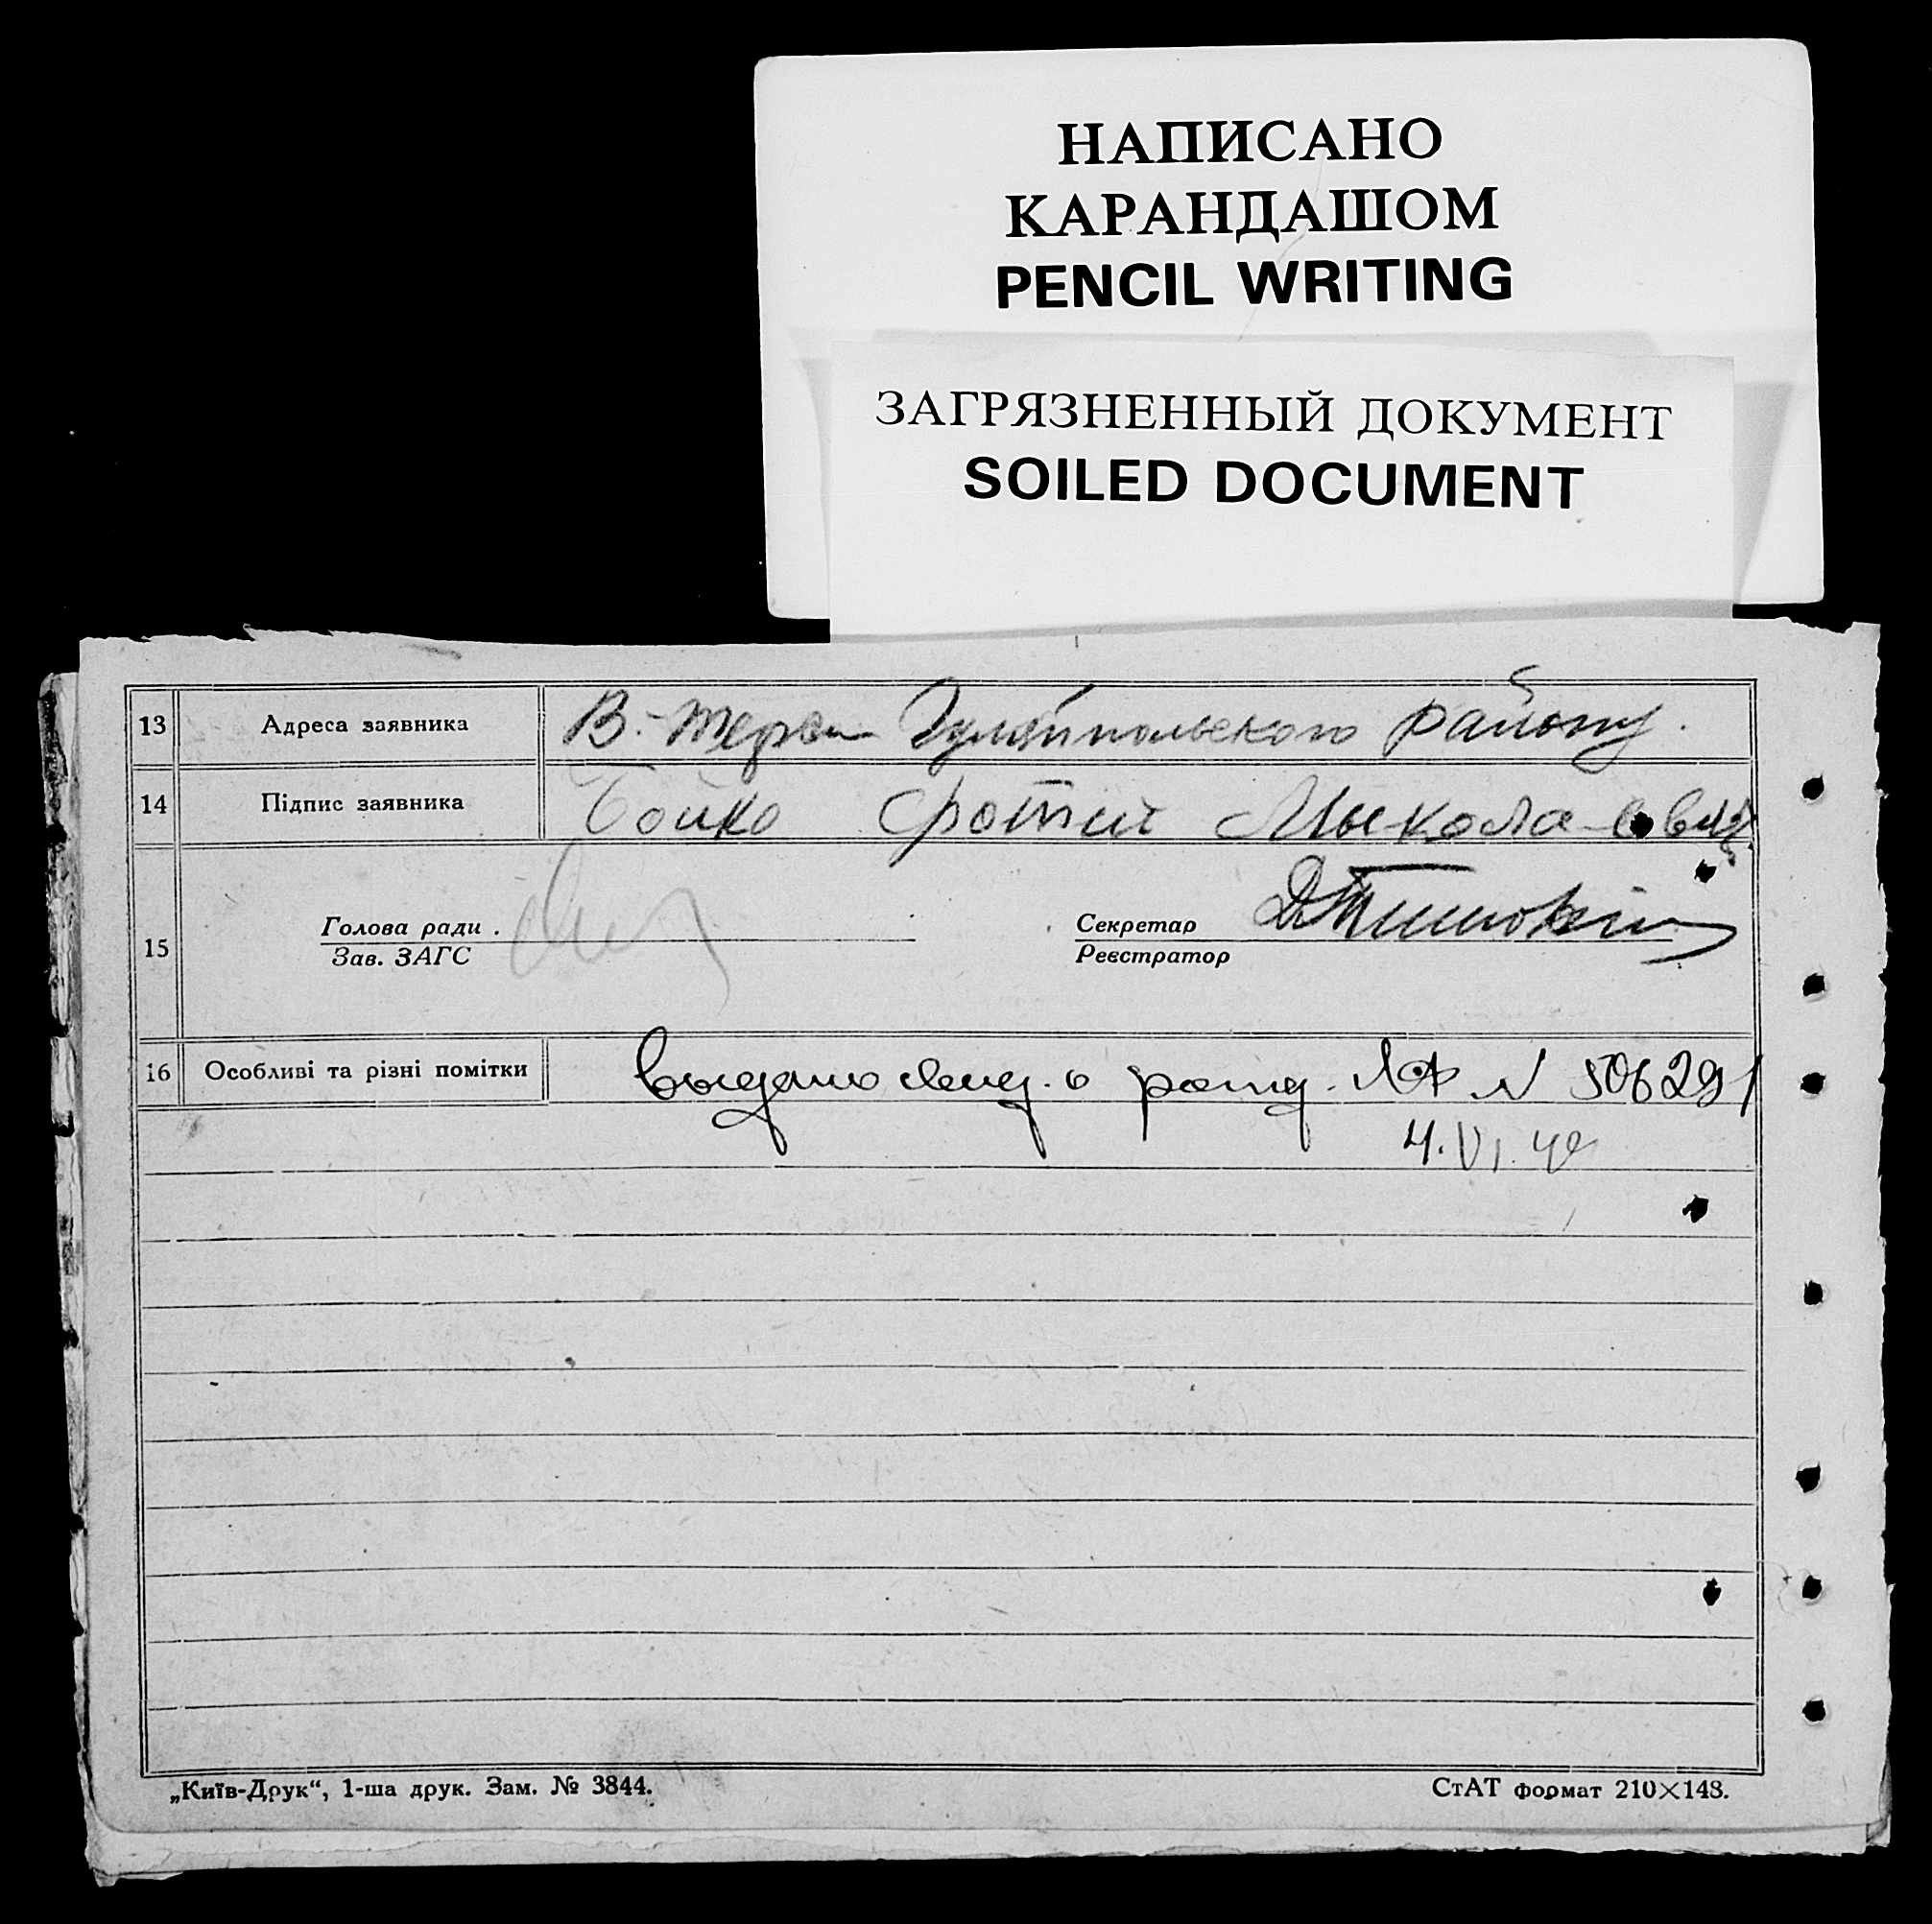 НАПИСАНО
КАРАНДАШОМ
PENCIL WRITING
ЗАГРЯЗНЕННЫЙ ДОКУМЕНТ
SOILED DOCUMENT
13 Адреса заявника В.-Терса Гуляйпольского району.
14 Підпис заявника Бойко Фотий Мыкола
15 Голова ради Секретар
Зав. ЗАГС Реєстратор
16 Особливі та різні помітки выдано о рожд. N 506291
4.VI.40
„Київ-Друк“, 1-ша друк. Зам. № 3844. СтАТ формат 210×148.